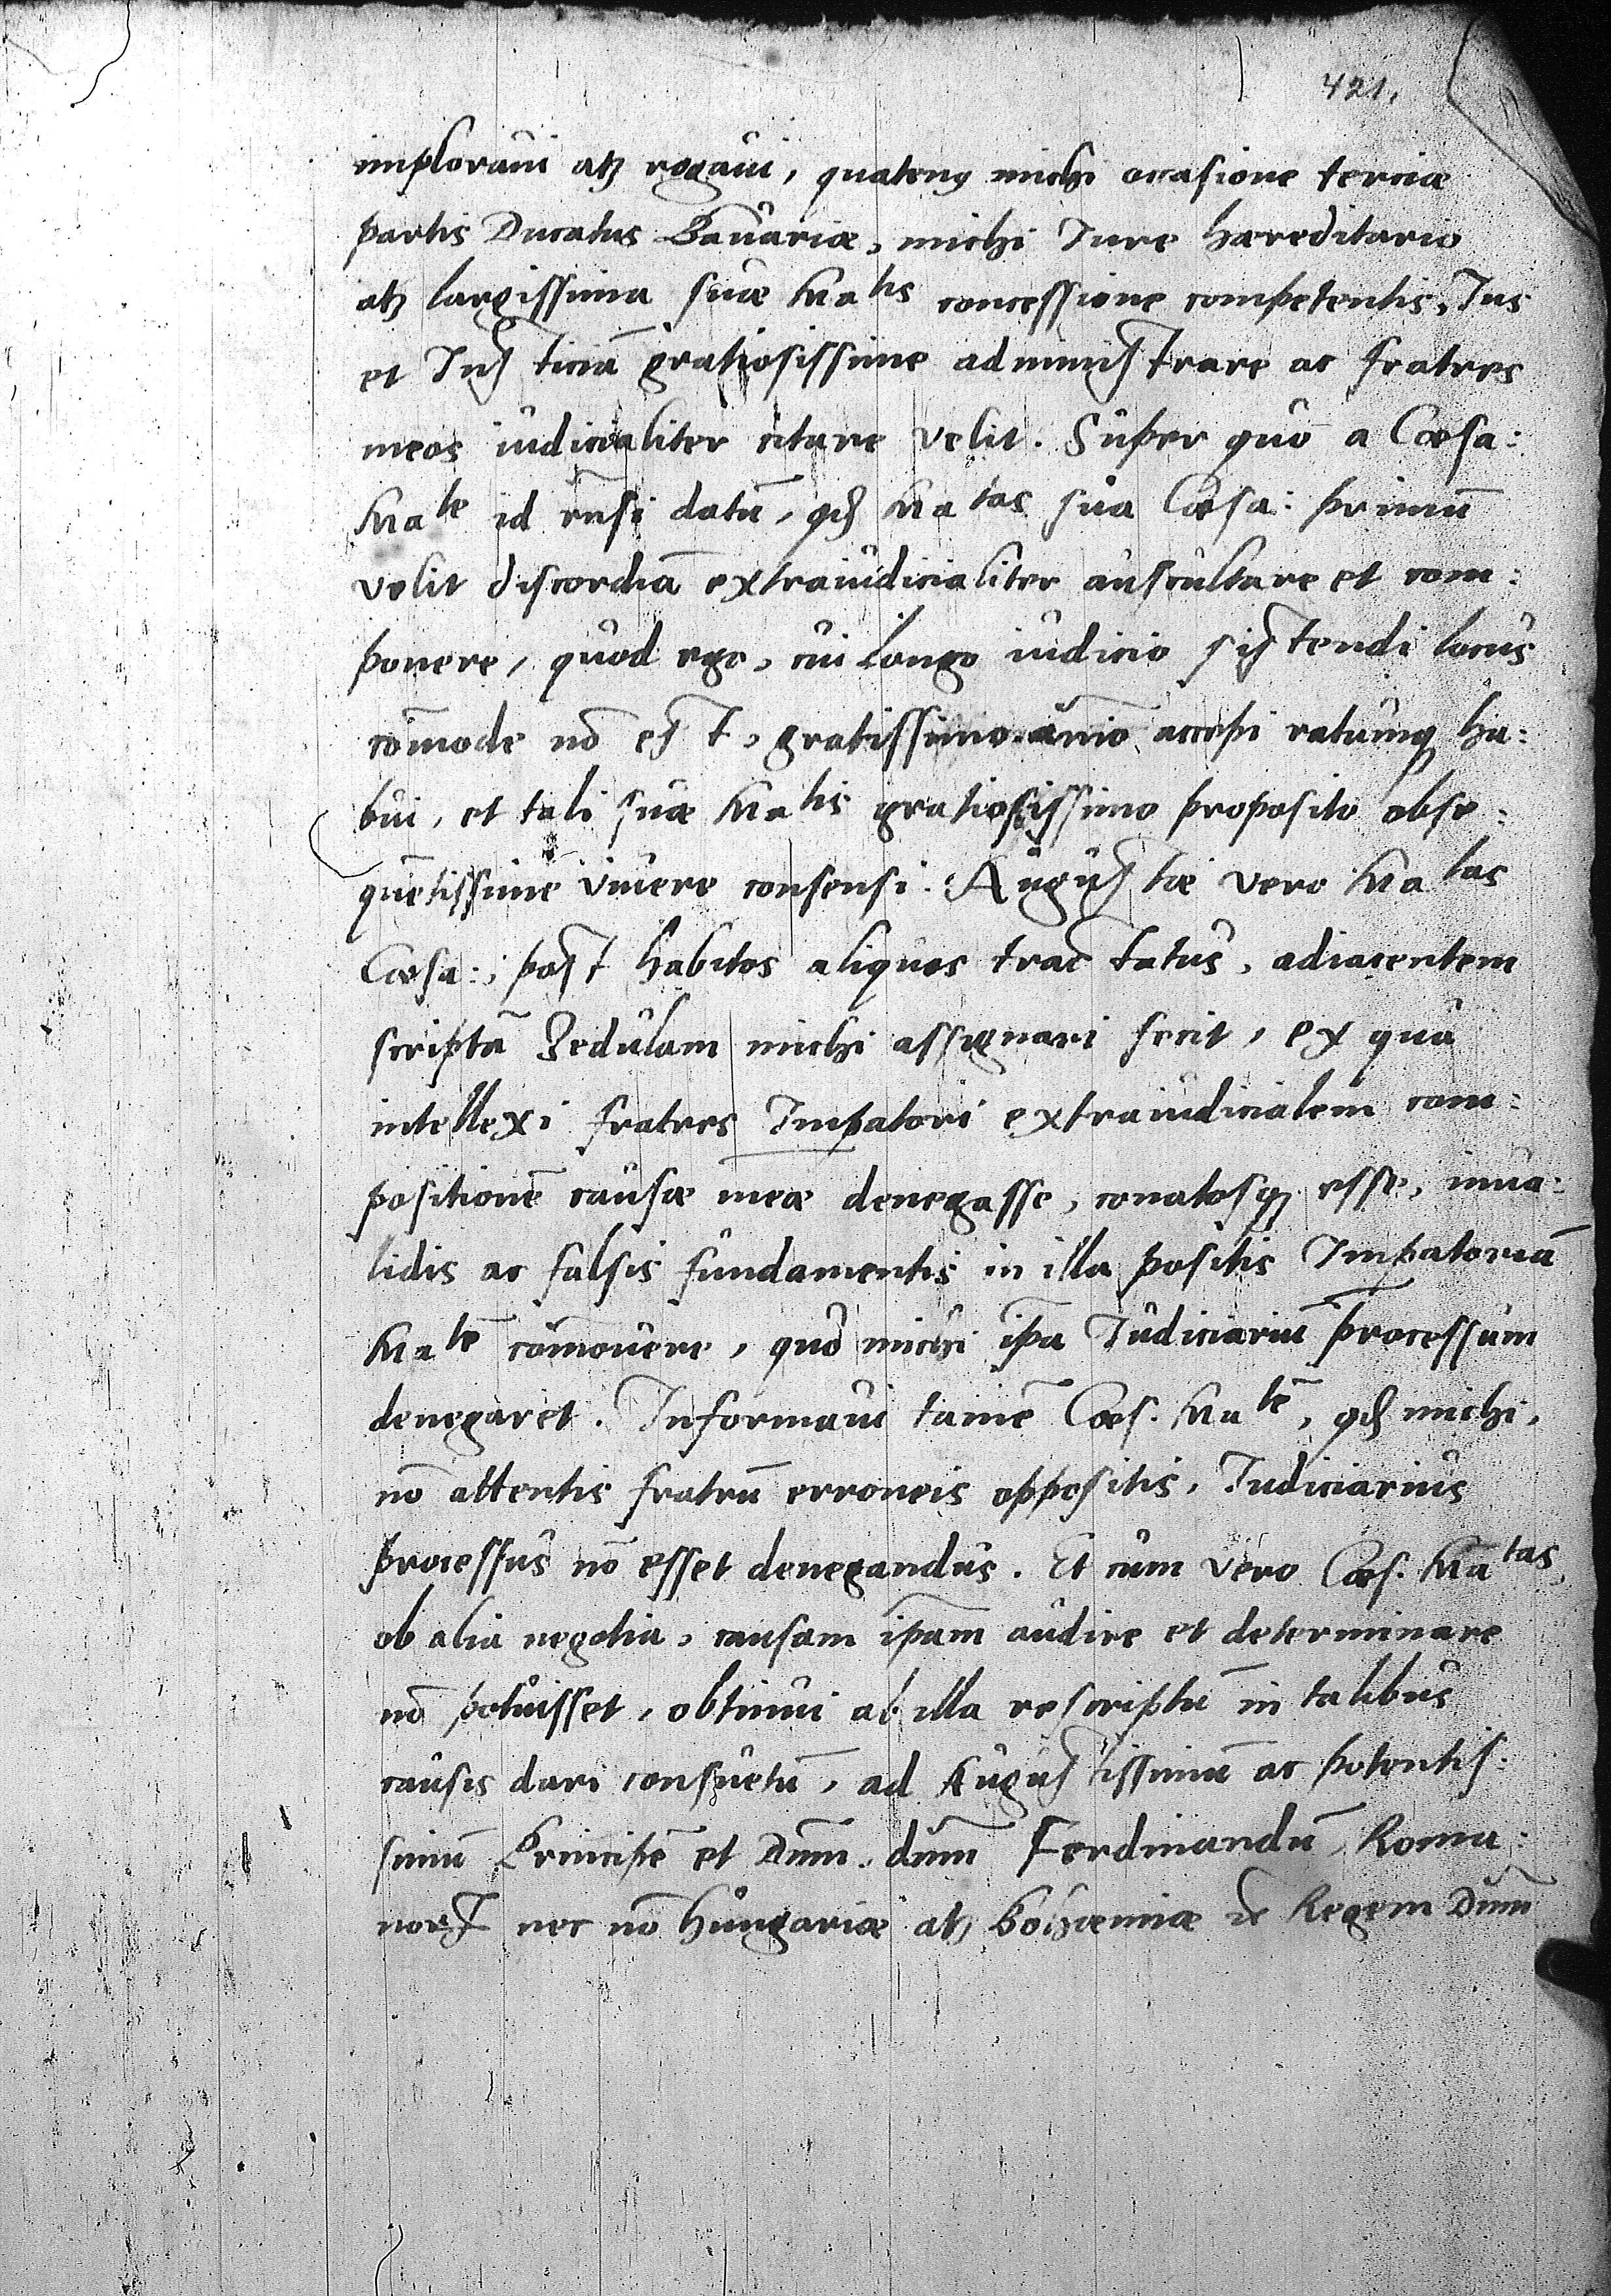 421.
imploraui atꝫ rogaui, quatenꝰ michi occasione terciæ
partis Ducatus Bauariæ, michi Iure hæreditario
atꝫ largissima suæ Maᵗⁱˢ concessione competentis, Ius
et Iusticiā gratiosissime administrare ac fratres
meos iudicialiter citare velit. Super quo a Cæsa:
Maᵗᵉ id rn̄si datū, qd̓ Maᵗᵃˢ sua Cæsa: primū
velit discordiā extraiudicialiter auscultare et com:
ponere, quod ego, cui longo iudicio sistendi locus
com̄ode nō est, gratissimo aīo accepi ratumqꝫ ha:
bui, et tali suæ Maᵗⁱˢ gratiosissimo proposito obse:
quētissime viuere consensi. Augustæ vero Maᵗᵃˢ
Cæsa:, post habitos aliquos tractatus, adiacentem
scriptā Zedulam michi assignari fecit, ex qua
intellexi fratres Imꝑatori extraiudicialem com:
positionē causæ meæ denegasse, conatosqꝫ esse, inua:
lidis ac falsis fundamentis in illa positis Imꝑatoriā
Maᵗē com̄ouere, quo michi ip̄a Iudiciariū processum
denegaret. Informaui tamē Cæs. Maᵗē, qd̓ michi,
nō attentis fratrū erroneis oppositis, Iudiciarius
processus nō esset denegandus. Et cum vero Cæs. Maᵗᵃˢ
ob alia negotia, causam ip̄am audire et determinare
nō potuisset, obtinui ab illa rescriptū in talibus
causis dari consuetū, ad Augustissimū ac potentis:
simū Principē et Dn̄m. dn̄m Ferdinandū, Roma:
norꝝ nec nō Hungariæ atꝫ Bohæmiæ ꝛc Regem Dn̄m